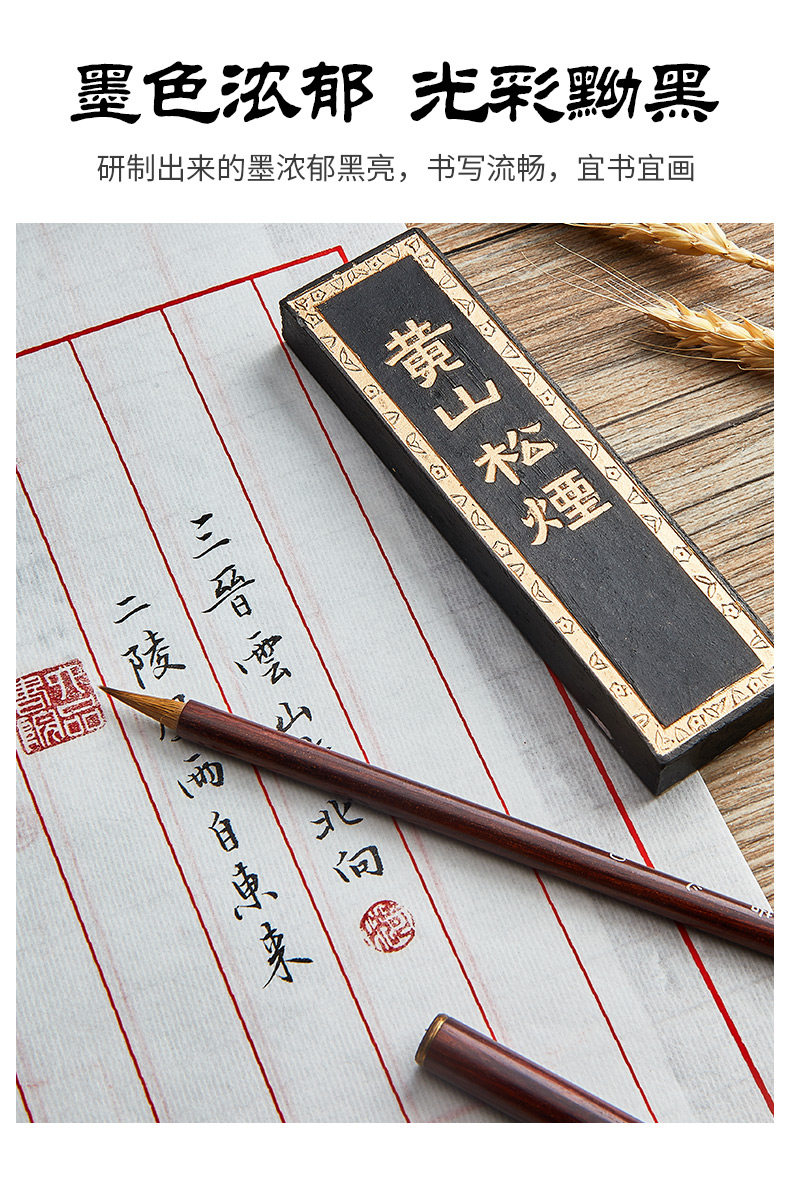 墨色浓郁 光彩黝黑
研制出来的墨浓郁黑亮，书写流畅，宜书宜画
黄山松煙
三晉雲山
北向
二陵
雨自東来